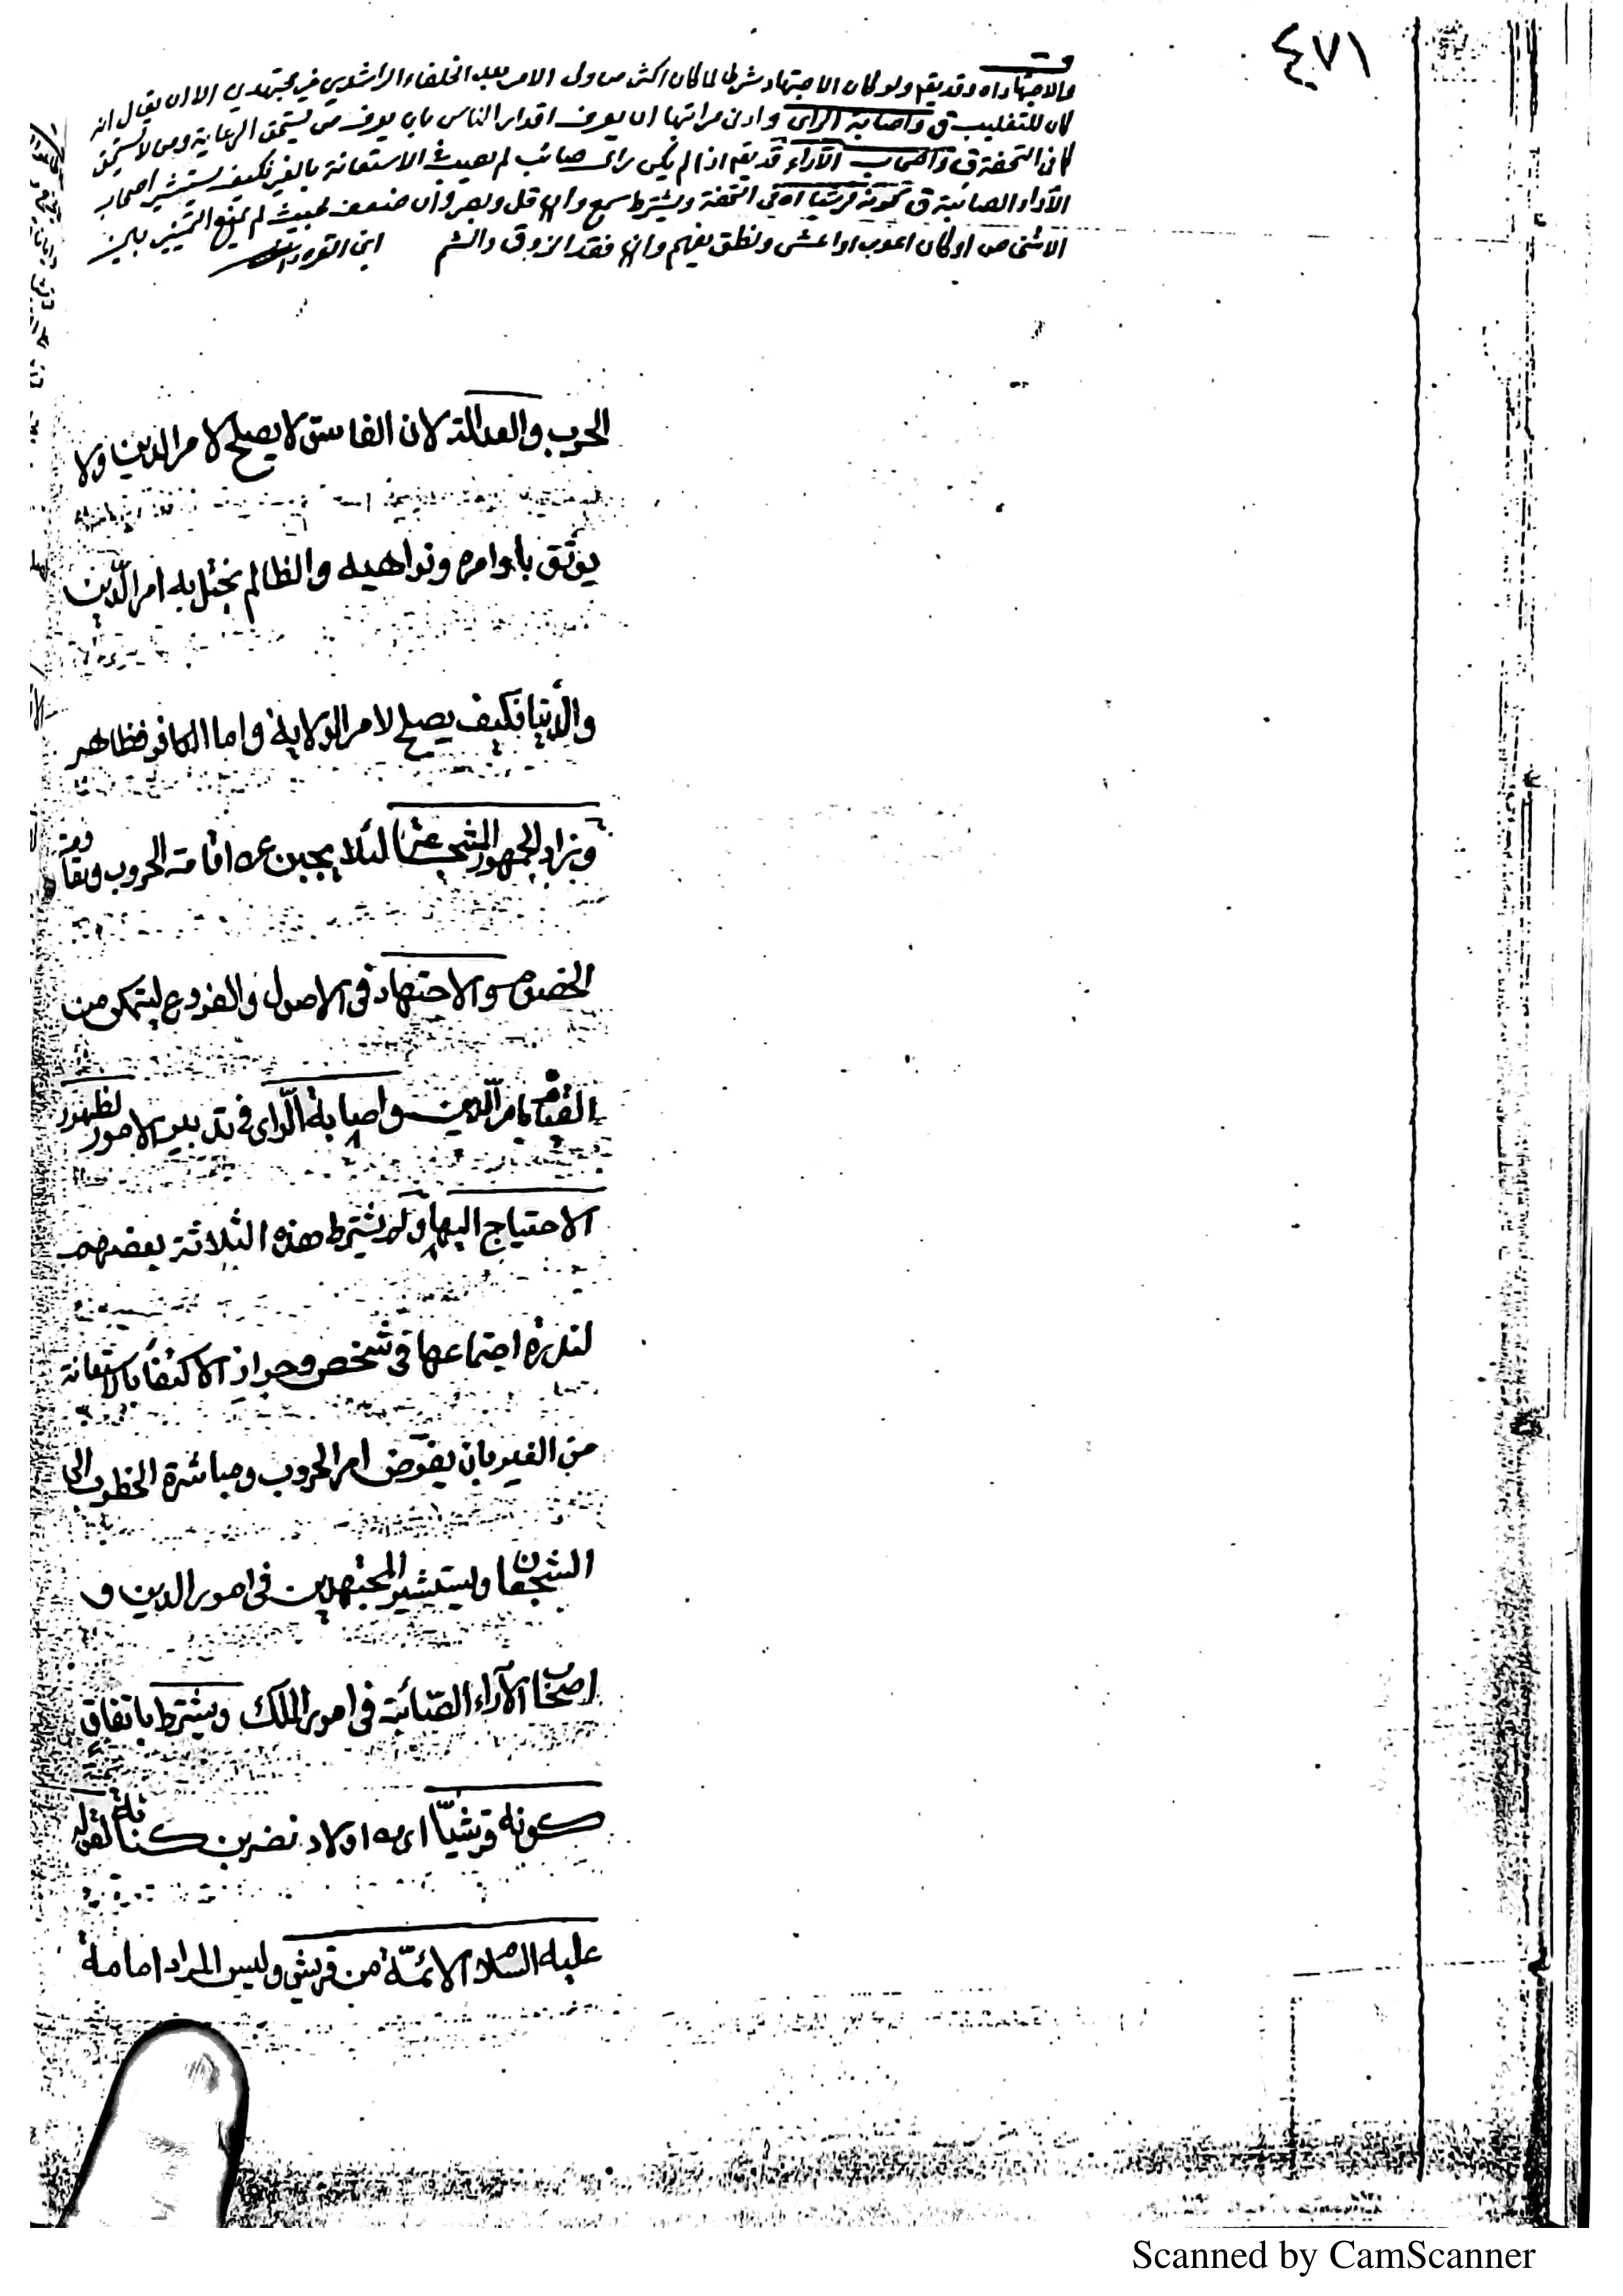 ٤٧١
والاجتهاد اه وقد يقم ولو كان الاجتهاد شرطا لما كان اكثر من ولى الامر بعد الخلفاء الراشدين غير مجتهدين الا ان يقال انه
كان للتغليب ق واصابة الراى وادنى مراتبها ان يعرف اقدار الناس بان يعرف من يستحق الرعاية ومن لا يستحق
كما فى التحفة ق واصحاب الآراء قد يقم اذا لم يكن راى صائب لم يصب فى الاستعانة بالغير فكيف يستشير اصحاب
الآراء الصائبة ق كونه قرشيا اه فى التحفة ويشترط سمع وان قل وبصر وان ضعف بحيث لم يمنع التمييز بين
الاشخاص او كان اعور او اعشى ونطق يفهم وان فقد الذوق والشم ابن القره داغى
الحرب والعدالة لان الفاسق لا يصلح لامر الدين ولا
يوثق باوامره ونواهيه والظالم يختل به امر الدّين
والدّنيا فكيف يصلح لامر الولاية واما الكافر فظاهر
ويزاد الجمهور الشجاعة لئلا يجبن عن اقامة الحروب ومقاومة
الخصوم والاجتهاد فى الاصول والفروع ليتمكن من
القيام بامر الدّين واصابة الرّاى فى تدبير الامور لظهور
الاحتياج اليها ولم يشترط هذه الثلاثة بعضهم
لندرة اجتماعها فى شخص وجواز الاكتفاء بالاستعانة
من الغير بان يفوّض امر الحروب ومباشرة الخطوب الى
الشجعان ويستشير المجتهدين فى امور الدين و
اصحاب الآراء الصّائبة فى امور الملك ويشترط باتفاق
كونه قرشيّا اى من اولاد نضر بن كنانة لقوله
عليه السلام الائمّة من قريش وليس المراد امامة
Scanned by CamScanner